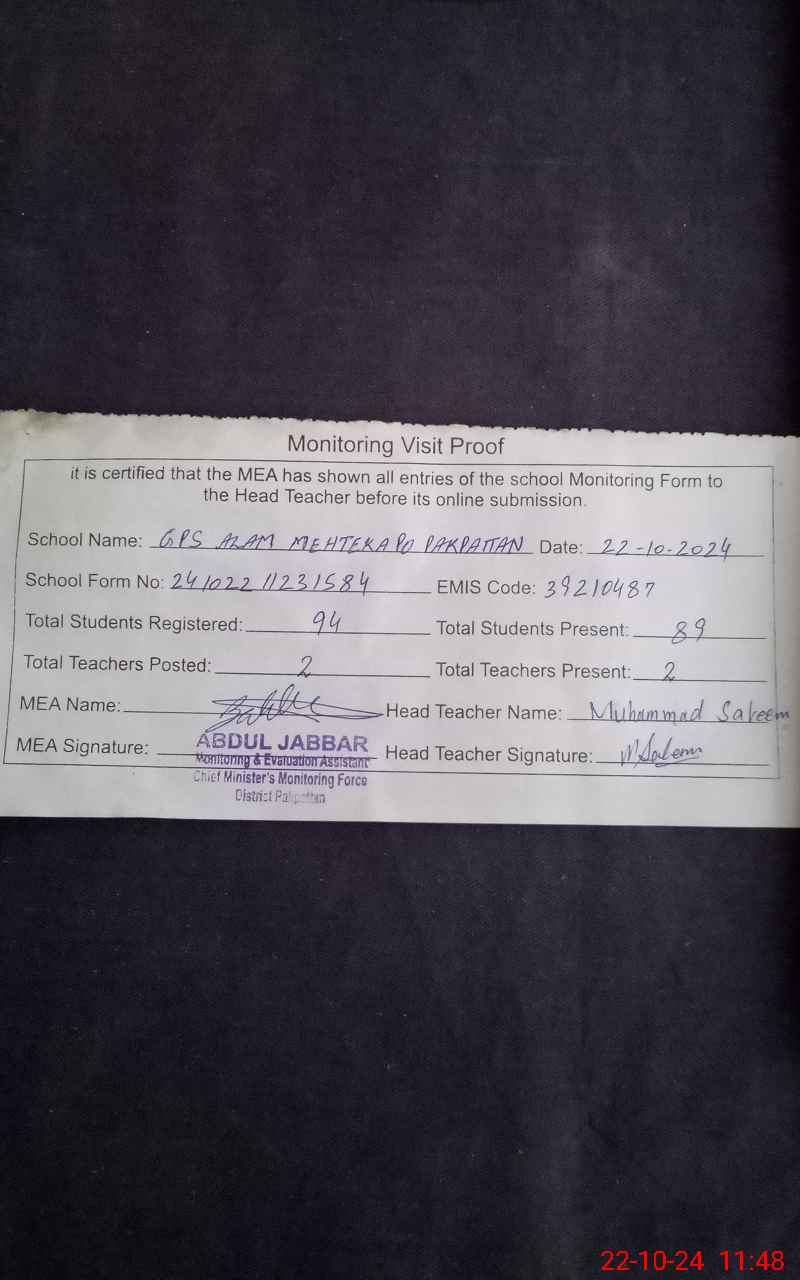 Monitoring Visit Proof
it is certified that the MEA has shown all entries of the school Monitoring Form to
the Head Teacher before its online submission.
School Name: GPS ALAM MEHTEKA PO PAKPATTAN Date: 22-10-2024
School Form No: 24102211231584 EMIS Code: 39210487
Total Students Registered: 94 Total Students Present: 89
Total Teachers Posted: 2 Total Teachers Present: 2
MEA Name: Head Teacher Name: Muhammad Saleem
MEA Signature: ABDUL JABBAR Head Teacher Signature: M.Saleem
Monitoring & Evaluation Assistant
Chief Minister's Monitoring Force
District Pakpattan
22-10-24 11:48